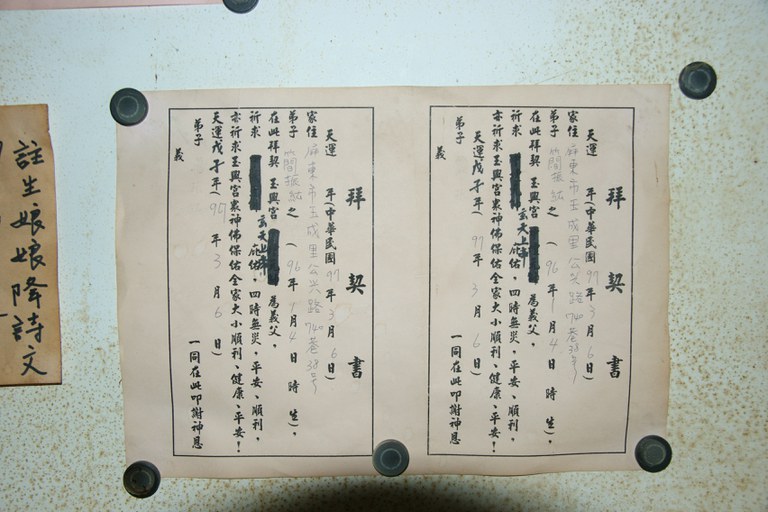 拜契書
天運 年(中華民國97年3月6日)
家住屏東市玉成里公興路740巷38号
弟子 簡振紘 之 (96年1月4日 時生),
在此拜契 玉興宮 玄天上帝 為義父,
祈求 玄天上帝 庇佑,四時無災,平安、順利,
亦祈求玉興宮眾神佛保佑全家大小順利、健康、平安!
天運戊子年(97年3月6日)
弟子
義 一同在此叩謝神恩
拜契書
天運 年(中華民國97年3月6日)
家住屏東市玉成里公興路740巷38号
弟子 簡振紘 之 (96年1月4日 時生),
在此拜契 玉興宮 玄天上帝 為義父,
祈求 玄天上帝 庇佑,四時無災,平安、順利,
亦祈求玉興宮眾神佛保佑全家大小順利、健康、平安!
天運戊子年(97年3月6日)
弟子
義 一同在此叩謝神恩
註生娘娘降詩文